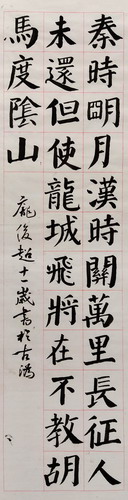 秦時明月漢時關萬里長征人
未還但使龍城飛將在不教胡
馬度陰山
龐俊超十一歲書於古鴻